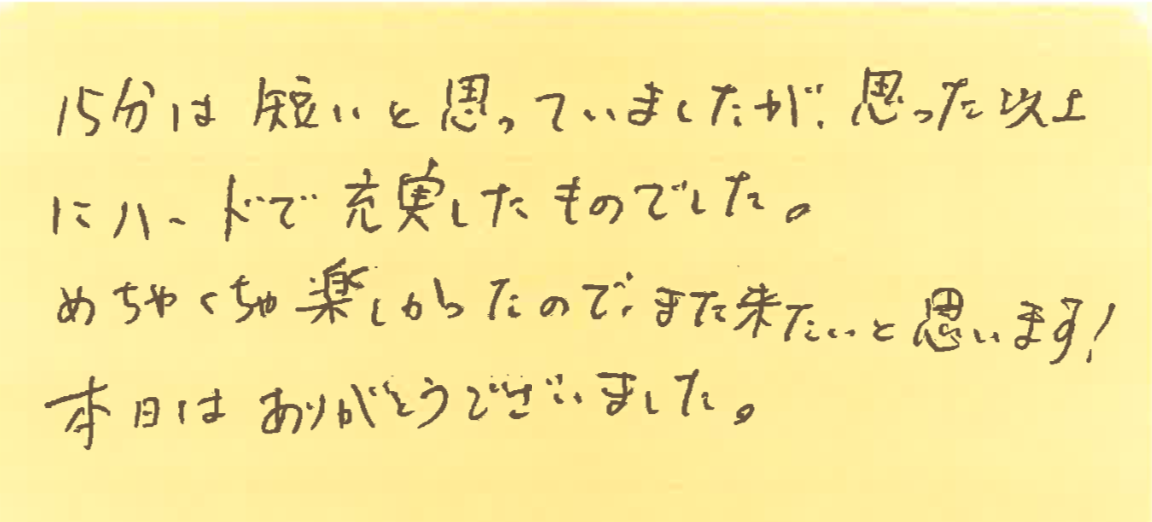 15分は短いと思っていましたが、思った以上
にハードで充実したものでした。
めちゃくちゃ楽しかったので、また来たいと思います!
本日はありがとうございました。